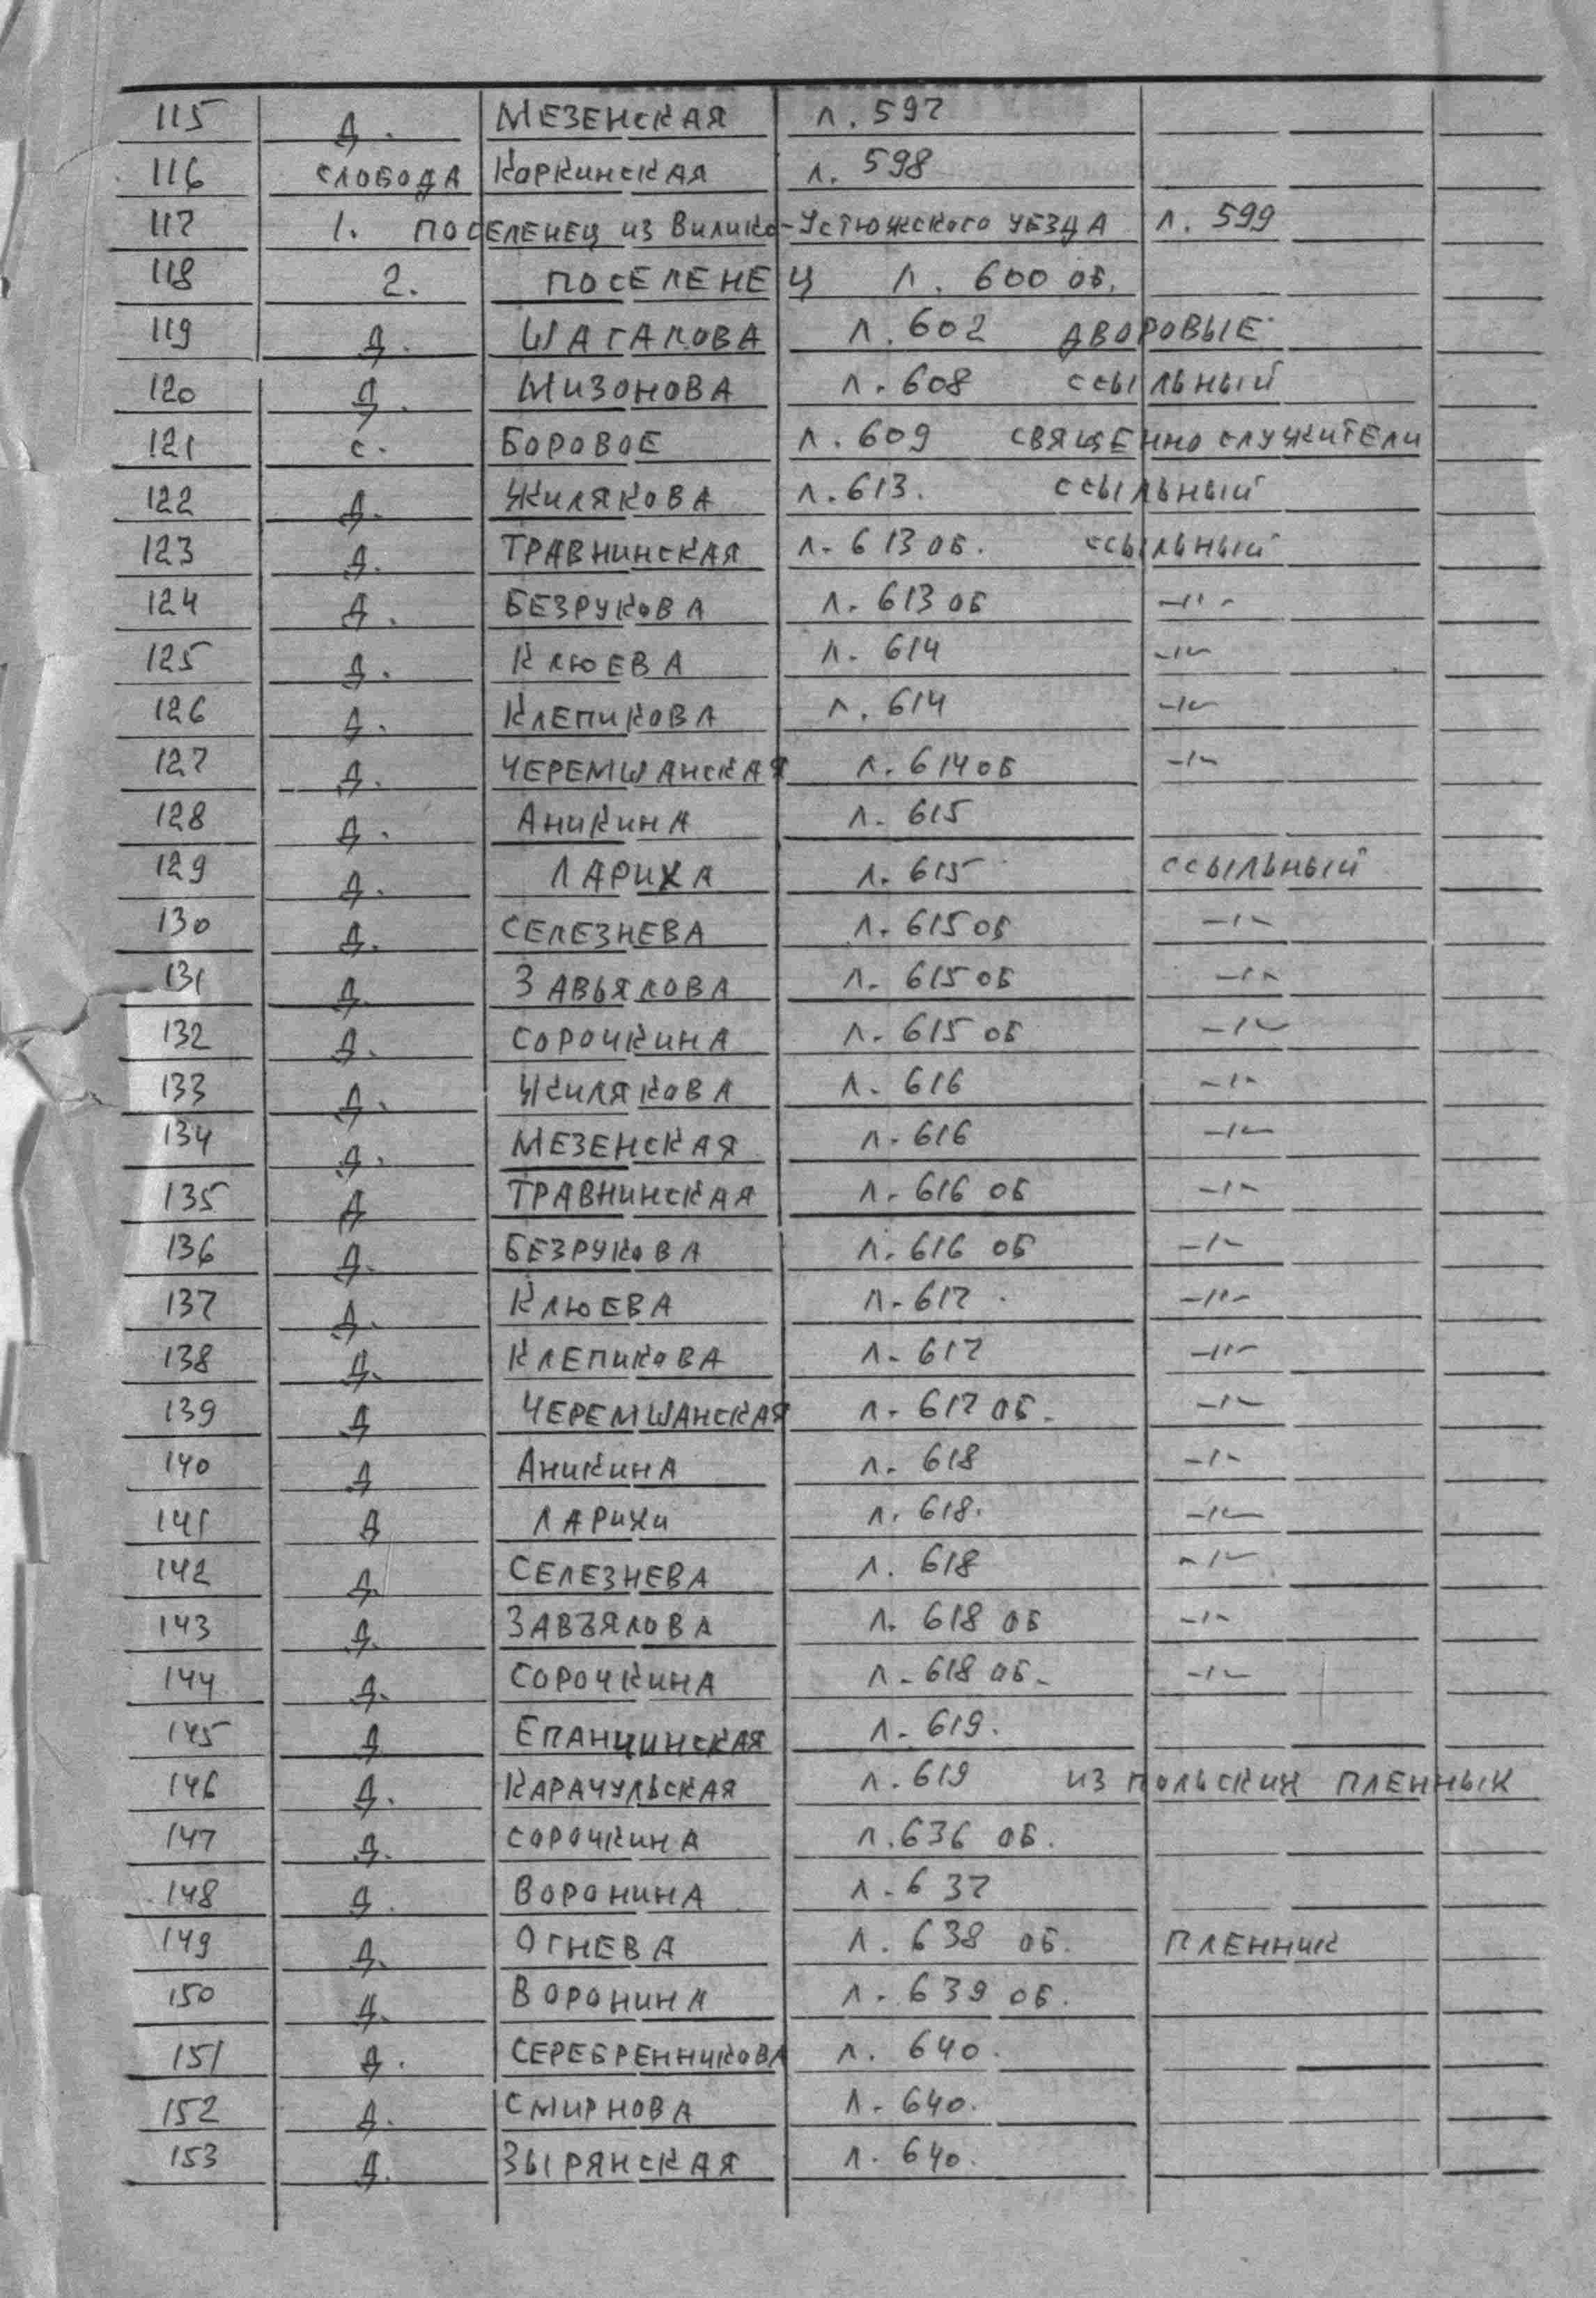 115 Д. МЕЗЕНСКАЯ Л. 597
116 СЛОБОДА КОРКИНСКАЯ Л. 598
117 1. ПОСЕЛЕНЕЦ ИЗ ВИЛИКО-УСТЮЖСКОГО УЕЗДА Л. 599
118 2. ПОСЕЛЕНЕЦ Л. 600 ОБ.
119 Д. ШАГАЛОВА Л. 602 ДВОРОВЫЕ
120 Д. МИЗОНОВА Л. 608 ССЫЛЬНЫЙ
121 С. БОРОВОЕ Л. 609 СВЯЩЕННОСЛУЖИТЕЛИ
122 Д. ЖИЛЯКОВА Л. 613. ССЫЛЬНЫЙ
123 Д. ТРАВНИНСКАЯ Л. 613 ОБ. ССЫЛЬНЫЙ
124 Д. БЕЗРУКОВА Л. 613 ОБ -"-
125 Д. КЛЮЕВА Л. 614 -"-
126 Д. КЛЕПИКОВА Л. 614 -"-
127 Д. ЧЕРЕМШАНСКАЯ Л. 614 ОБ -"-
128 Д. АНИКИНА Л. 615
129 Д. ЛАРИХА Л. 615 ССЫЛЬНЫЙ
130 Д. СЕЛЕЗНЕВА Л. 615 ОБ -"-
131 Д. ЗАВЬЯЛОВА Л. 615 ОБ -"-
132 Д. СОРОЧКИНА Л. 615 ОБ -"-
133 Д. ЖИЛЯКОВА Л. 616 -"-
134 Д. МЕЗЕНСКАЯ Л. 616 -"-
135 Д ТРАВНИНСКАЯ Л. 616 ОБ -"-
136 Д. БЕЗРУКОВА Л. 616 ОБ -"-
137 Д. КЛЮЕВА Л. 617 -"-
138 Д. КЛЕПИКОВА Л. 617 -"-
139 Д ЧЕРЕМШАНСКАЯ Л. 617 ОБ. -"-
140 Д АНИКИНА Л. 618 -"-
141 Д ЛАРИХИ Л. 618. -"-
142 Д. СЕЛЕЗНЕВА Л. 618 -"-
143 Д. ЗАВЪЯЛОВА Л. 618 ОБ -"-
144 Д. СОРОЧКИНА Л. 618 ОБ. -"-
145 Д ЕПАНЧИНСКАЯ Л. 619.
146 Д. КАРАЧУЛЬСКАЯ Л. 619 ИЗ ПОЛЬСКИХ ПЛЕННЫХ
147 Д. СОРОЧКИНА Л. 636 ОБ.
148 Д. ВОРОНИНА Л. 637
149 Д. ОГНЕВА Л. 638 ОБ. ПЛЕННИК
150 Д. ВОРОНИНА Л. 639 ОБ.
151 Д. СЕРЕБРЕННИКОВА Л. 640.
152 Д. СМИРНОВА Л. 640.
153 Д. ЗЫРЯНСКАЯ Л. 640.